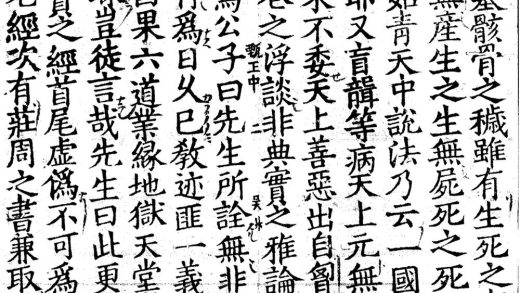 骸骨之穢雖有生死之
無產生之生無屍死之死
如青天中說法乃云一國
耶又盲聾等病天上元無
來不委天上善惡出自胷
巷之浮談非典實之雅論
甄正中 二
爲公子曰先生所詮無非
爲日久已教迹匪一義
因果六道業緣地獄天堂
豈徒言哉先生曰此更
之經首尾虛僞不可爲
經次有莊周之書兼取